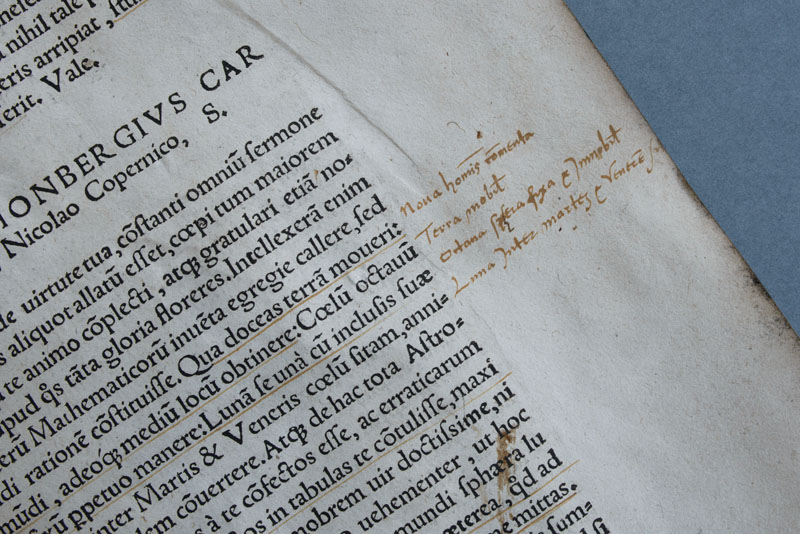 nihil tale
eris arripiat, ſtu
erit. Vale.
HONBERGIVS CAR
Nicolao Copernico, S.
de uirtute tua, cōſtanti omniū ſermone
s aliquot allatū eſſet, cœpi tum maiorem
te animo cōplecti, atqꝫ gratulari etiā no-
pud q̄s tāta gloria floreres. Intellexerā enim
erū Mathematicorū inuēta egregie callere, ſed
di rationē cōſtituiſſe. Qua doceas terrā moueri:
mūdi, adeoqꝫ mediū locū obtinere: Cœlū octauū
ꝑpetuo manere: Lunā ſe unà cū incluſis ſuæ
inter Martis & Veneris cœlū ſitam, anni-
cōuertere. Atqꝫ de hac tota Aſtro-
s à te cōfectos eſſe, ac erraticarum
os in tabulas te cōtuliſſe, maxi
mobrem uir doctiſsime, ni
uehementer, ut hoc
mundi ſphæra lu
æterea, qd ad
ne mittas.
is ſum-
d ſi
Noua homīs cōmenta
Terra mobil
fixa & Immobil
Luna Inter martē & Venerē